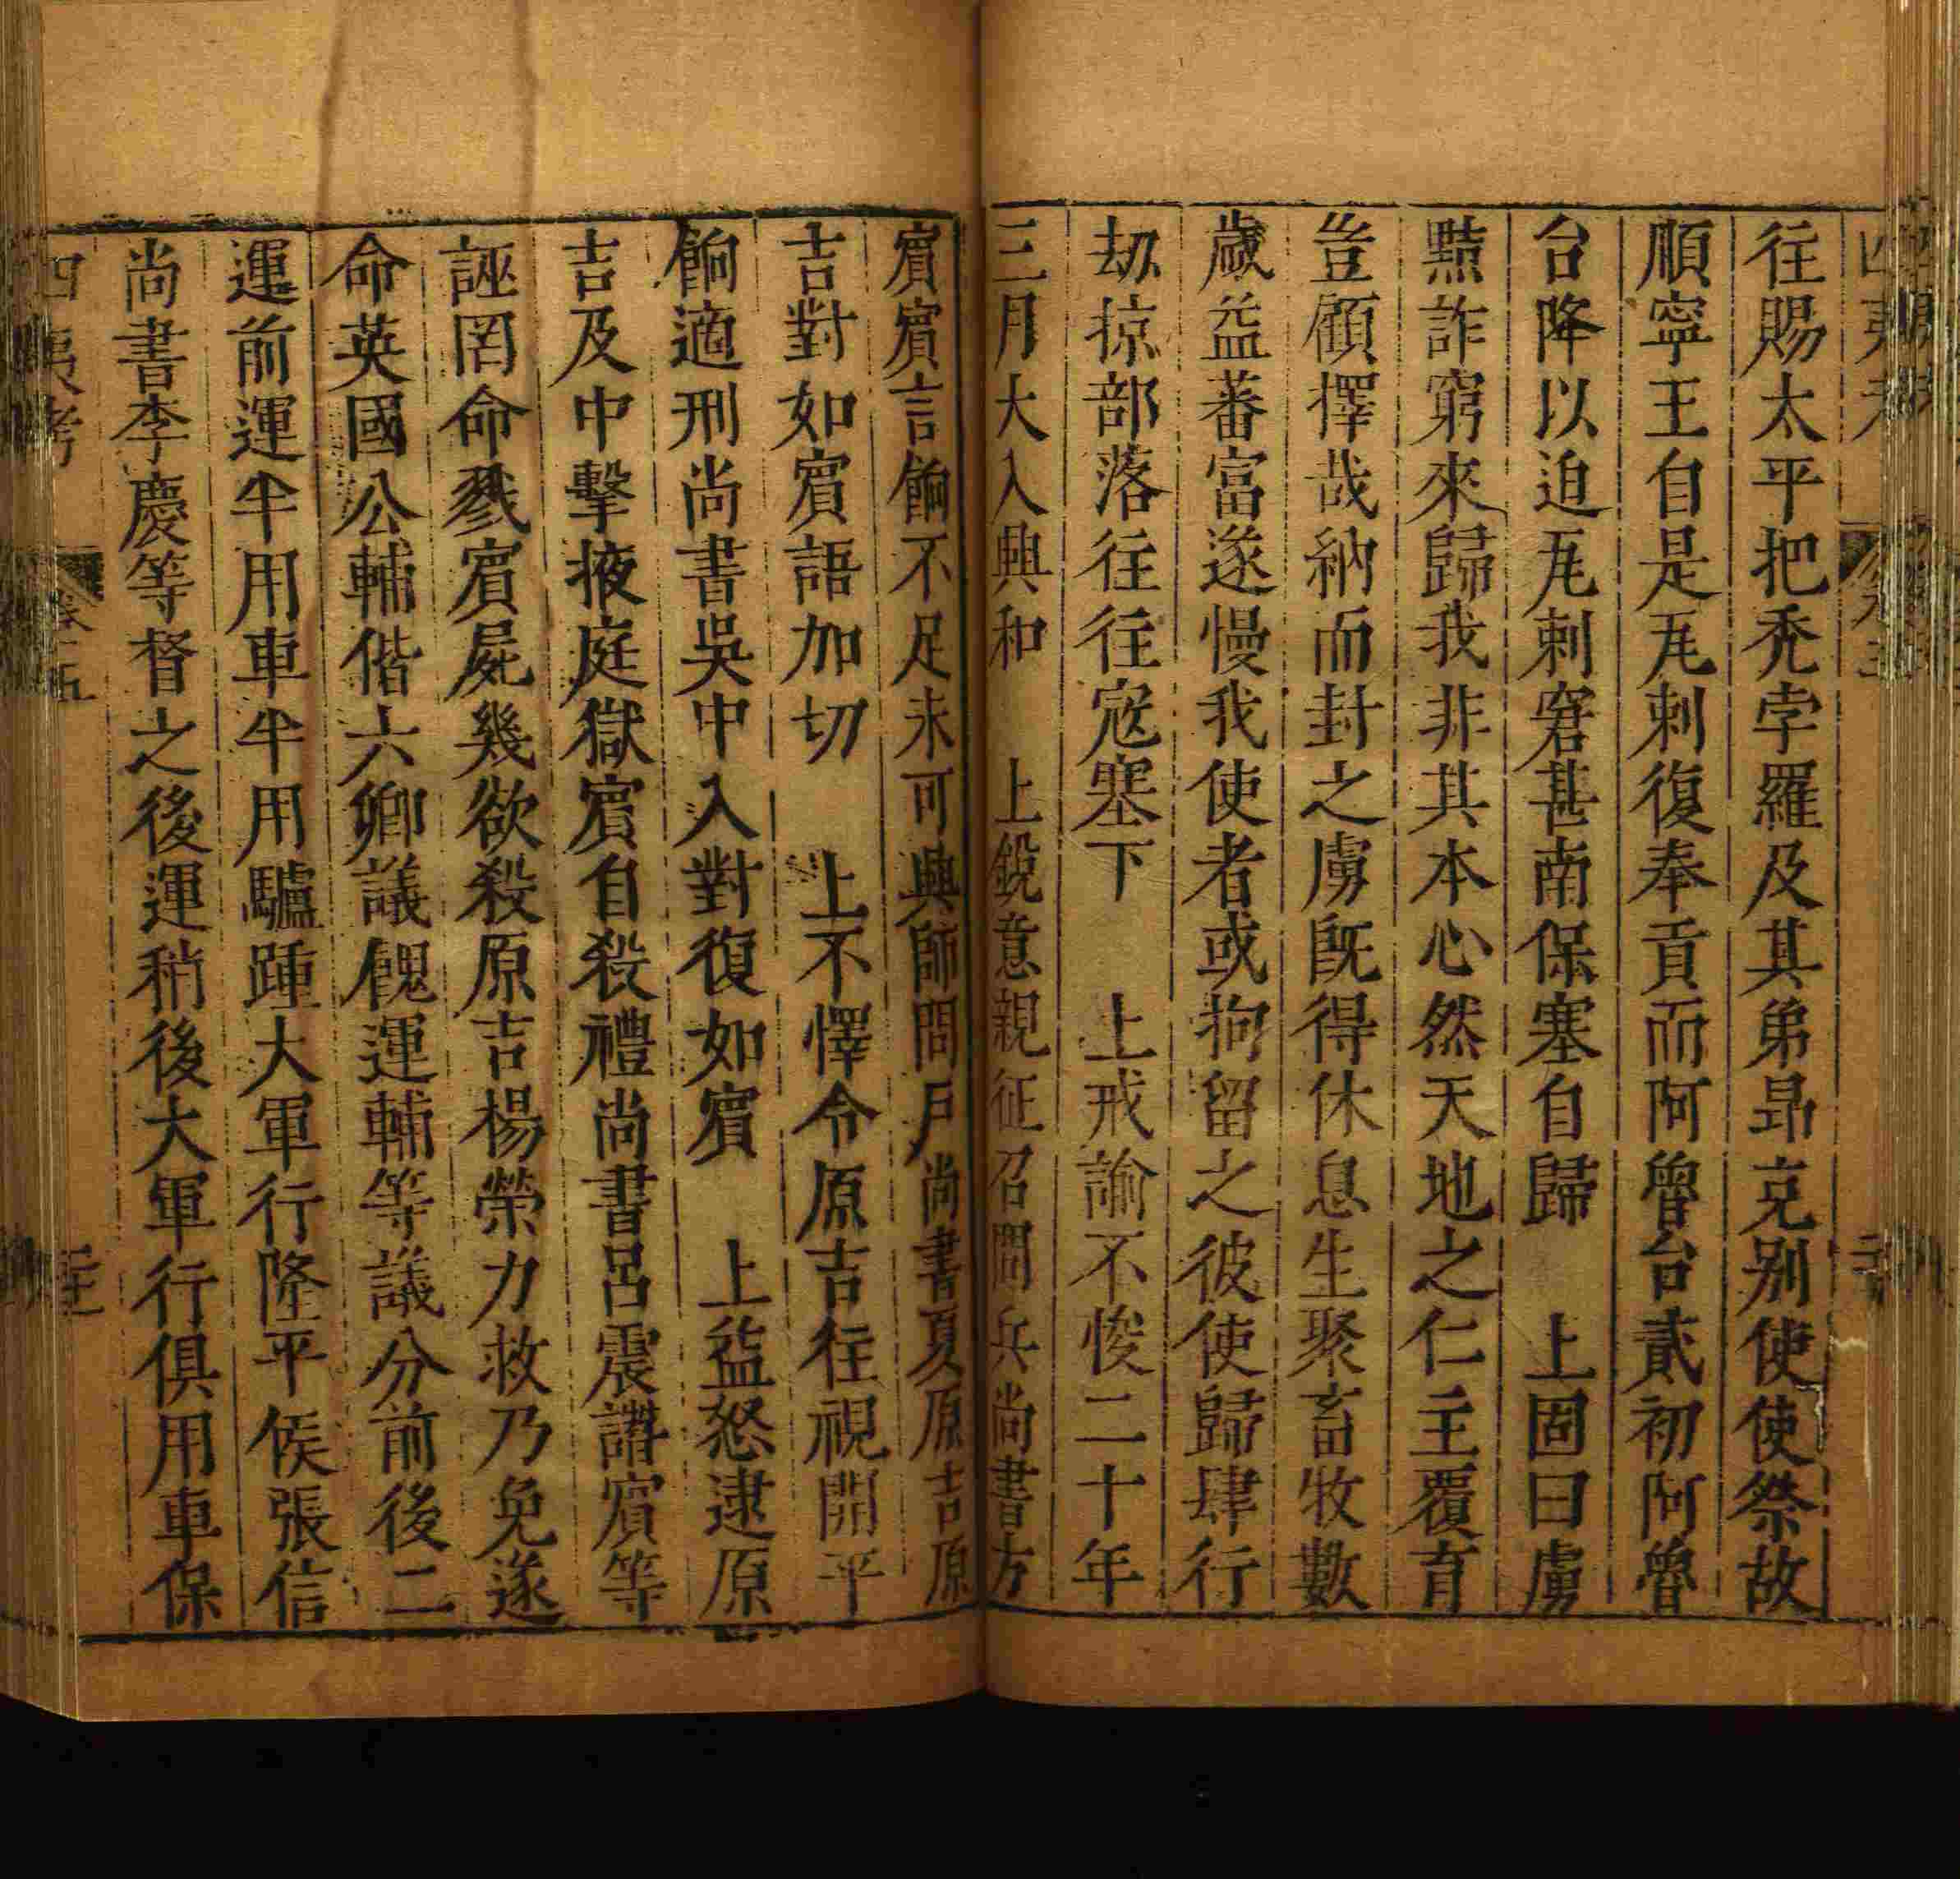 往賜太平把禿孛羅及其弟昂克别使使祭故
順寧王自是瓦剌復奉貢而阿魯台貳初阿魯
台降以迫瓦剌窘甚南保塞自歸　上固曰虜
黠詐窮來歸我非其本心然天地之仁主覆育
豈顧擇哉納而封之虜既得休息生聚畜牧數
歲益蕃富遂慢我使者或拘留之彼使歸肆行
劫掠部落往往寇塞下　上戒諭不悛二十年
三月大入興和　上銳意親征召問兵尚書方
賓賓言餉不足未可興師問戶尚書夏原吉原
吉對如賓語加切　上不懌令原吉往視開平
餉適刑尚書吳中入對復如賓　上益怒逮原
吉及中擊掖庭獄賓自殺禮尚書呂震譖賓等
誣罔命戮賓屍幾欲殺原吉楊榮力救乃免遂
命英國公輔偕六卿議餽運輔等議分前後二
運前運半用車半用驢踵大軍行隆平侯張信
尚書李慶等督之後運稍後大軍行俱用車保
四夷考　卷五